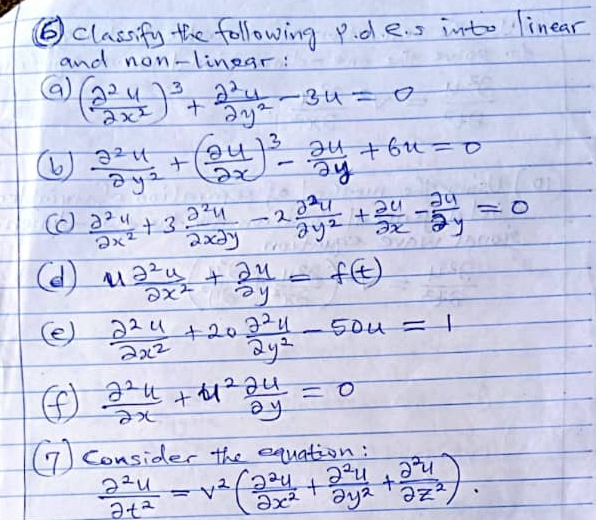 ⑥ Classify the following p.d.e.s into linear
and non-linear:
(a) (∂²u/∂x²)³ + ∂²u/∂y² - 3u = 0
(b) ∂²u/∂y² + (∂u/∂x)³ - ∂u/∂y + 6u = 0
(c) ∂²u/∂x² + 3 ∂²u/∂x∂y - 2 ∂²u/∂y² + ∂u/∂x - ∂u/∂y = 0
(d) u ∂²u/∂x² + ∂u/∂y = f(t)
(e) ∂²u/∂x² + 20 ∂²u/∂y² - 50u = 1
(f) ∂²u/∂x + u² ∂u/∂y = 0
(7) Consider the equation:
∂²u/∂t² = v² (∂²u/∂x² + ∂²u/∂y² + ∂²u/∂z²).